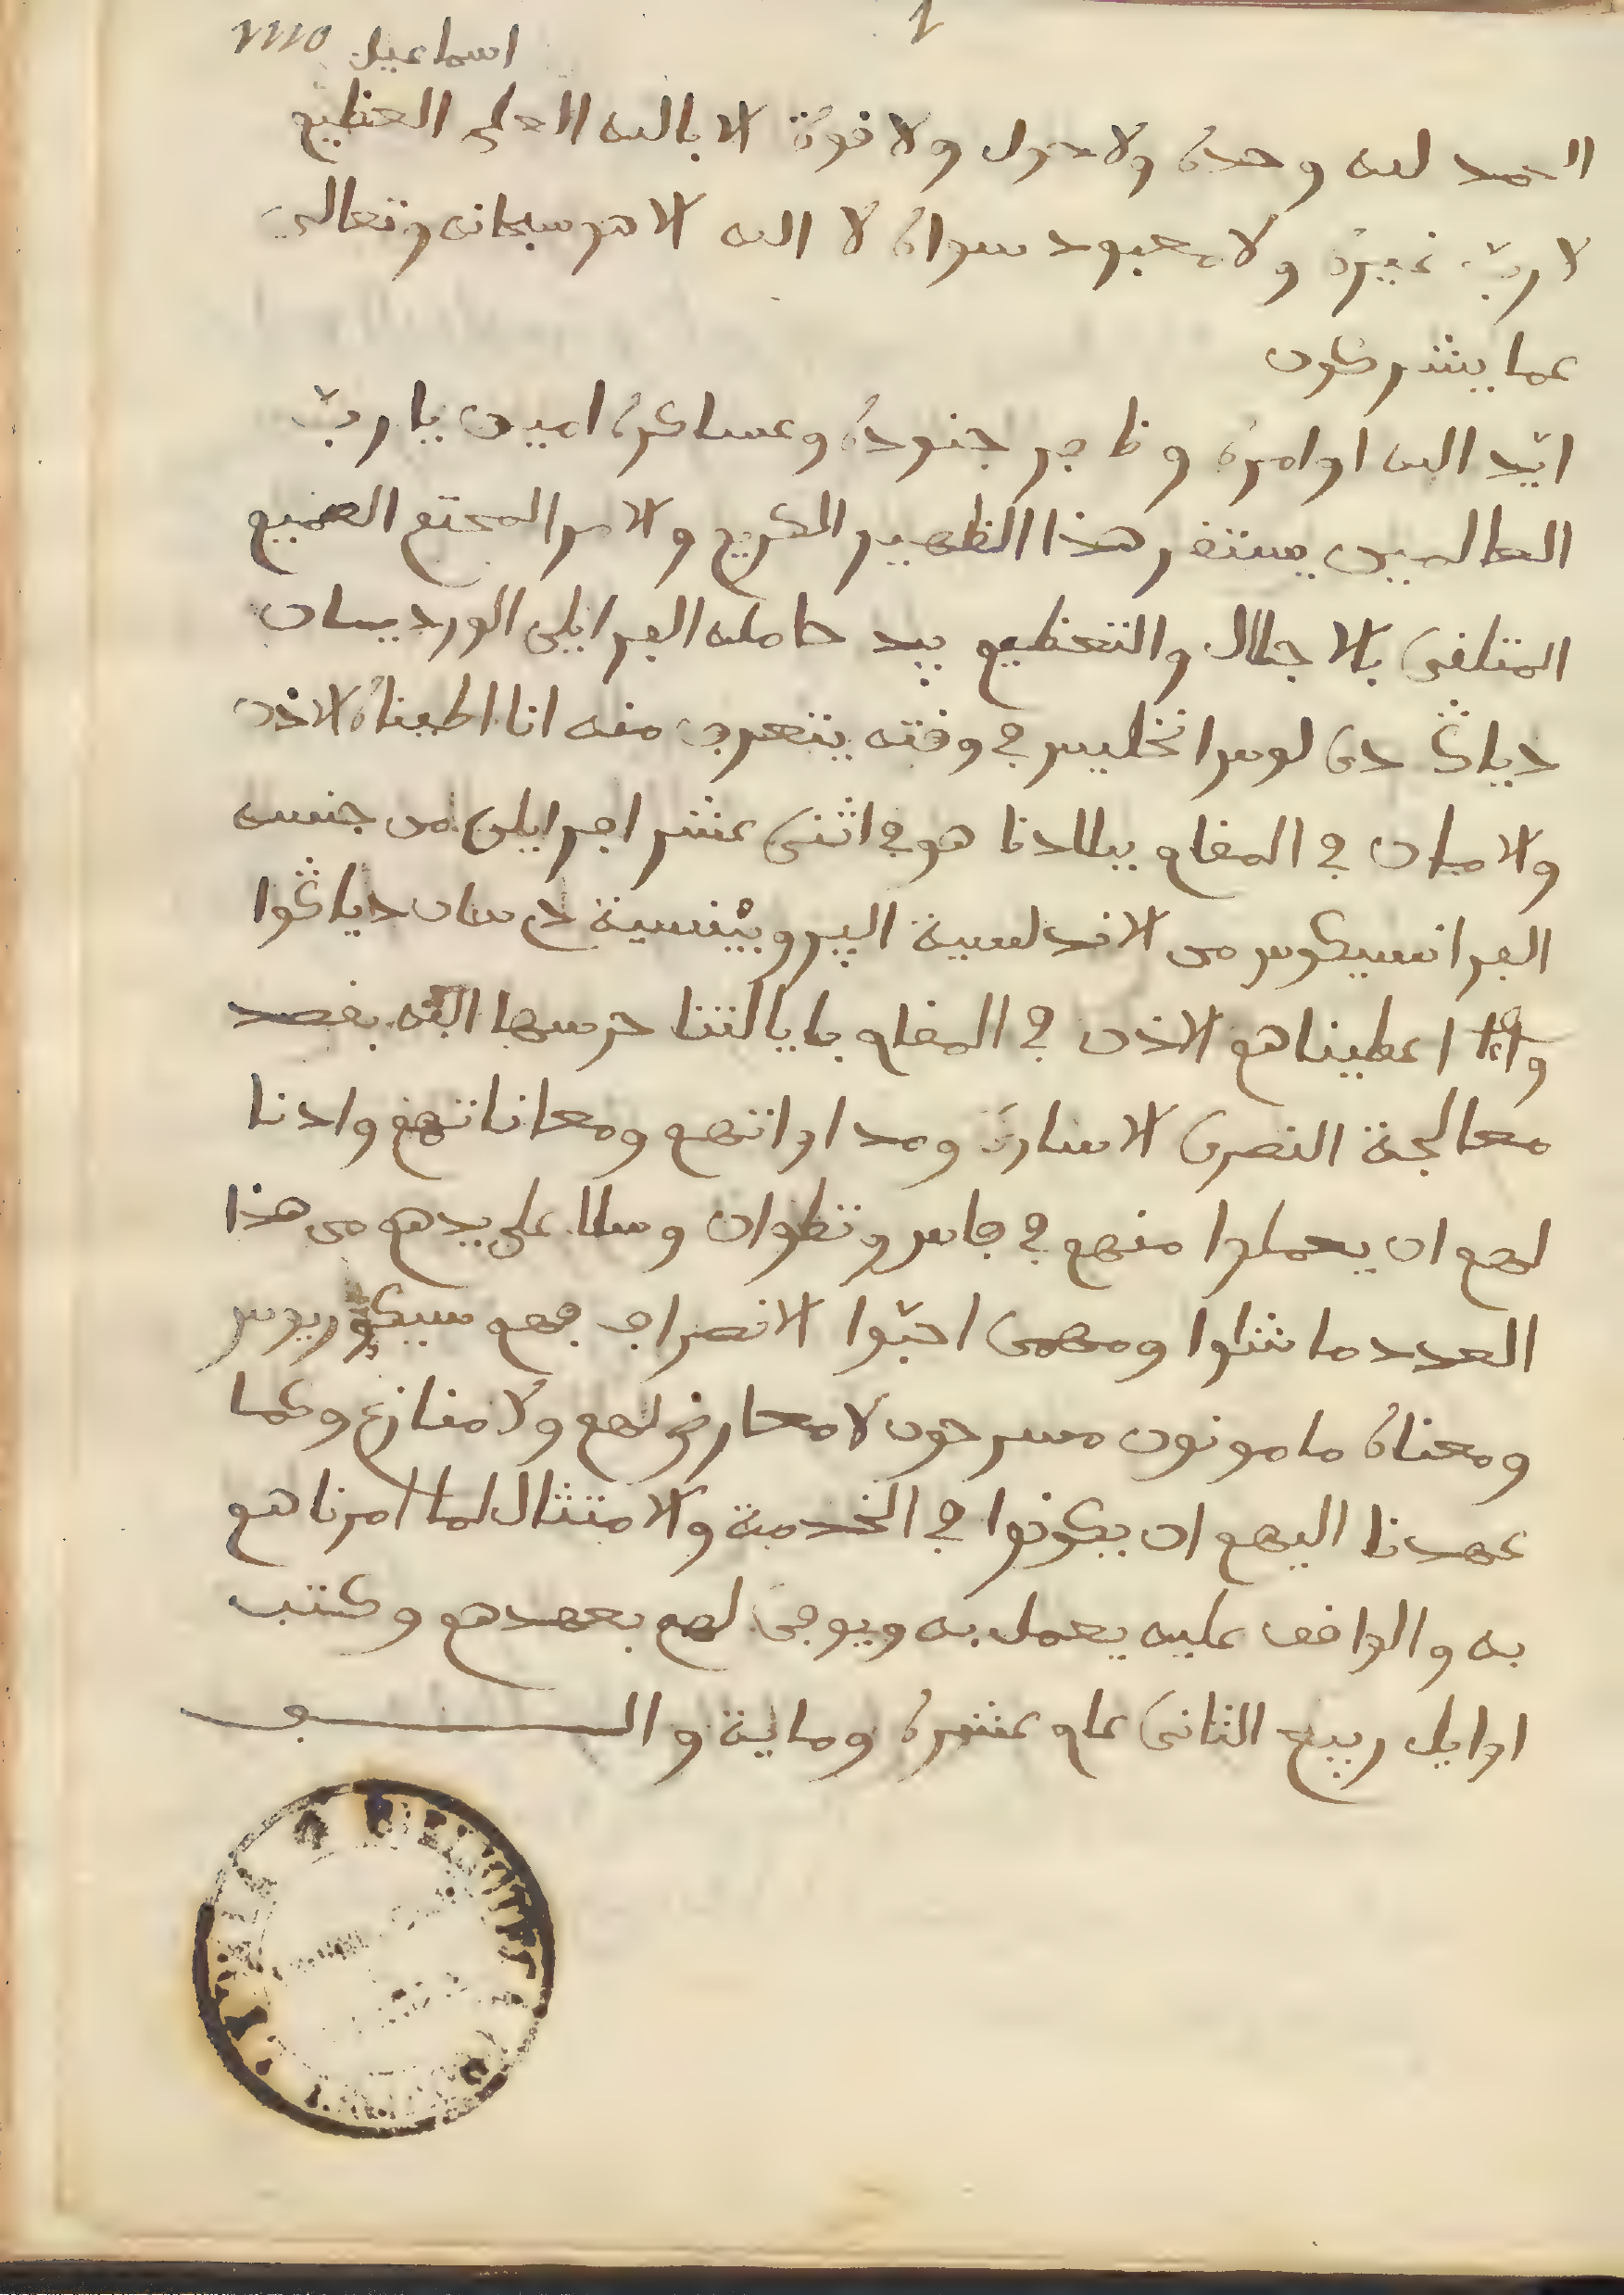 1
اسماعيل 1110
الحمد لله وحده ولا حول ولا قوة الا بالله العلي العظيم
لا ربّ غيره ولا معبود سواه لا اله الا هو سبحانه وتعالى
عما يشركون
ايّد الله اوامره وظاهر جنوده وعساكره امين يا ربّ
العالمين يستقر هذا الظهير الكريم والامر المحتم الصميم
المتلقى بالاجلال والتعظيم بيد حامله الفرايلي الورديان
دياڭ دى لوس انخليس في وقته يتعرف منه انا اعطيناه الاذن
والامان في المقام ببلادنا هو في اثنى عشر افرايلي من جنسه
الفرانسيكوس من الاندلسية البروبينسية د سان دياڭوا
وانا اعطيناهم الاذن في المقام بايالتنا حرسها الله بقصد
معالجة النصرى الاسارى ومداواتهم ومعاناتهم واذنا
لهم ان يعملوا منهم في فاس وتطوان وسلا على يدهم من هذا
العدد ما شاوا ومهمى احبّوا الانصراف فهم سيكوريوس
ومعناه مامونون مسرحون لا معارض لهم ولا منازع وكما
عهدنا اليهم ان يكونوا في الخدمة والامتثال لما امرناهم
به والواقف عليه يعمل به ويوفى لهم بعهدهم وكتب
اوايل ربيع الثانى عام عشره وماية والف